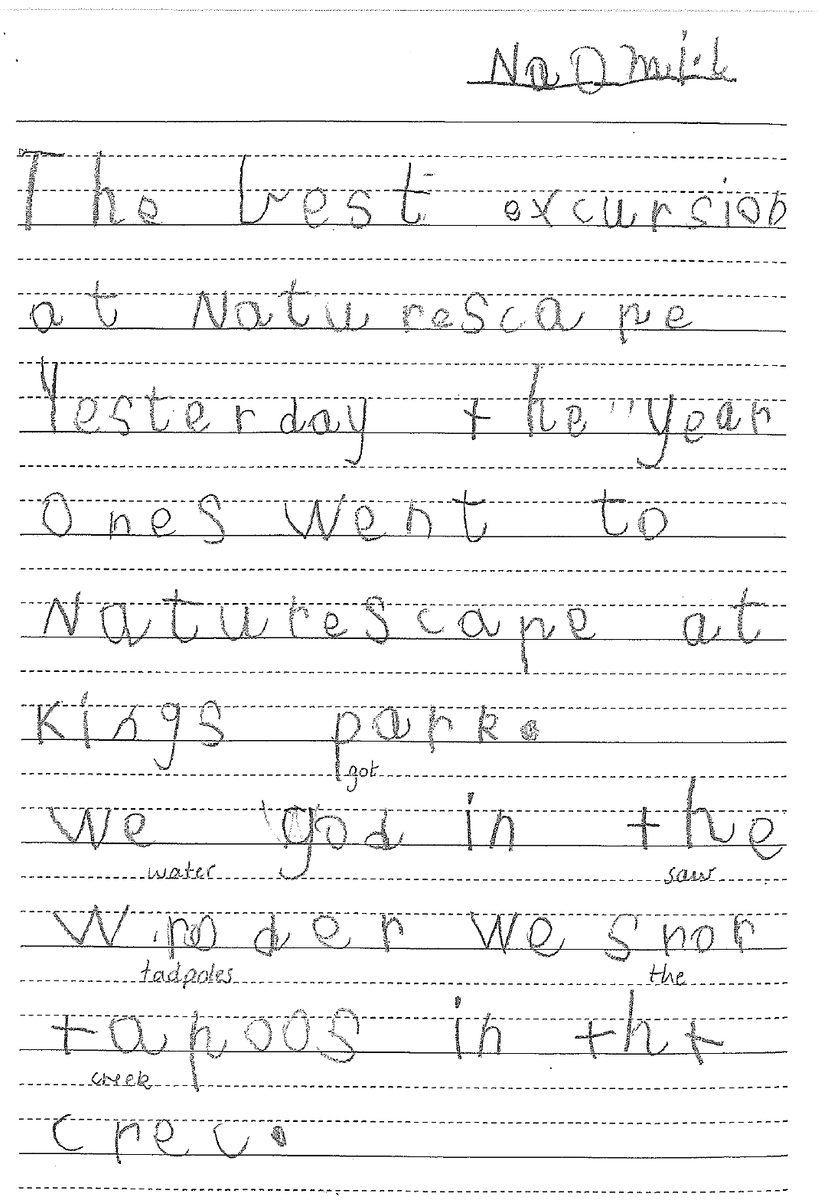 Naomi
The best excursion
at Naturescape
Yesterday the year
Ones Went to
Naturescape at
Kings park.
got
We god in the
water saw
Woder We snor
tadpoles the
tapoos in tht
creek
crec.